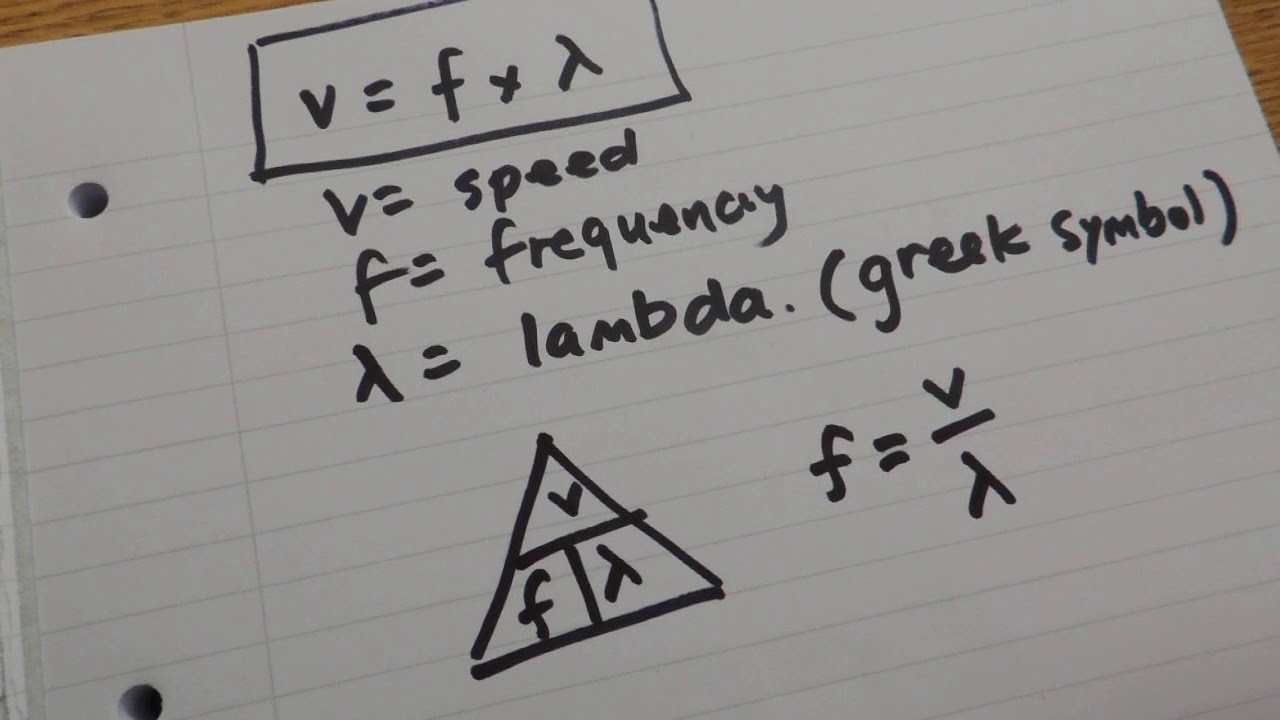 v = f × λ
v = speed
f = frequency
λ = lambda. (greek symbol)
f = v
λ
v
f λ